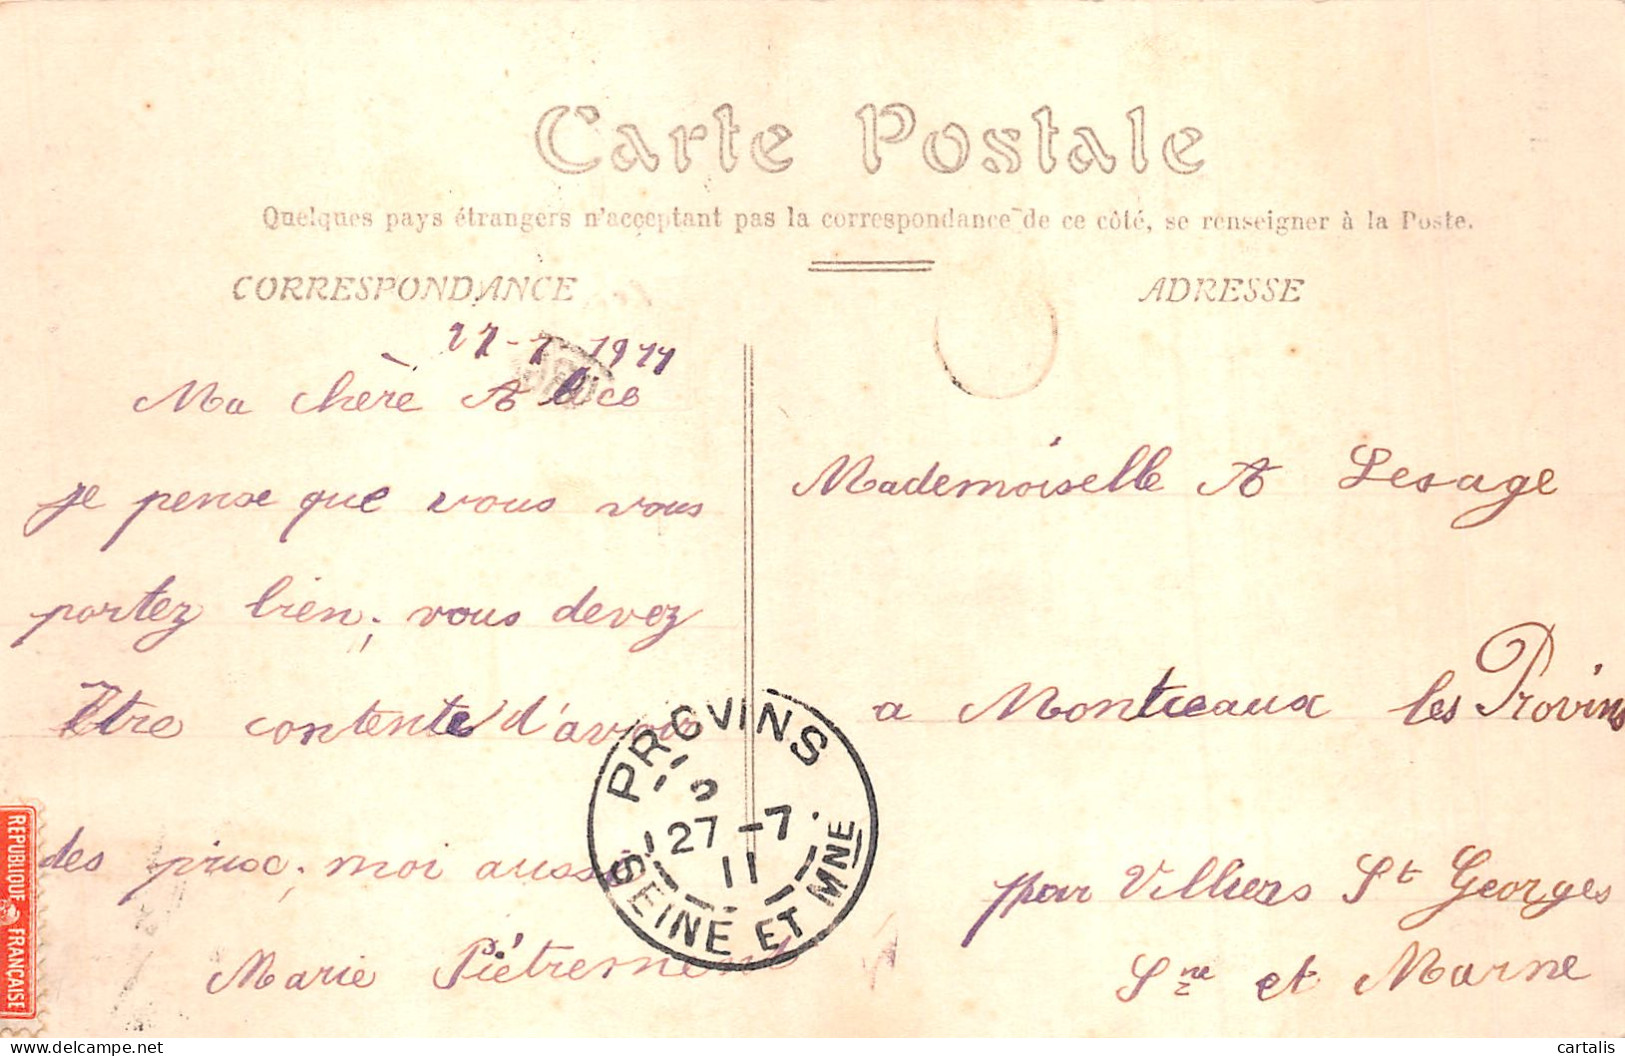 Carte Postale
Quelques pays étrangers n'acceptant pas la correspondance de ce côté, se renseigner à la Poste.
CORRESPONDANCE
27-7-1911
Ma chère Alice
je pense que vous vous
portez bien; vous devez
être contente d'avoir
des prix; moi aussi
Marie Piétrement
ADRESSE
Mademoiselle A Lesage
a Montceaux les Provins
par Villiers St Georges
Sne et Marne
PROVINS
27-7
11
SEINE ET MNE
REPUBLIQUE FRANÇAISE
www.delcampe.net
cartalis